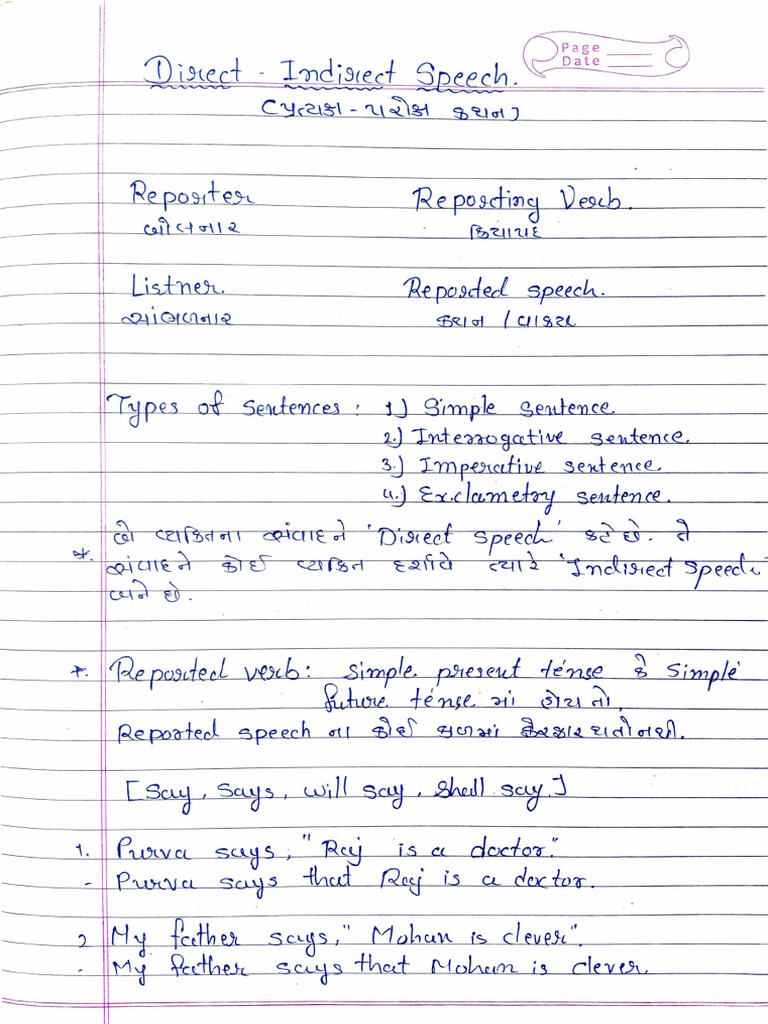 Page
Date
Direct - Indirect Speech.
(પ્રત્યક્ષ - પરોક્ષ કથન)
Reporter Reporting Verb.
બોલનાર ક્રિયાપદ
Listner. Reported speech.
સાંભળનાર કથન / વાક્ય
Types of sentences : 1) Simple sentence.
2.) Interrogative sentence.
3.) Imperative sentence.
4.) Exclametry sentence.
* બે વ્યકિતના સંવાદને 'Direct speech' કહે છે. તે
સંવાદને કોઈ વ્યકિત દર્શાવે ત્યારે 'Indirect speech'
બને છે.
*. Reported verb : Simple present tense કે simple
future tense માં હોય તો,
Reported speech ના કોઈ કાળમાં ફેરફાર થતો નથી.
[Say, Says, will say, Shall say.]
1. Purva says, "Raj is a doctor."
- Purva says that Raj is a doctor.
2 My father says, "Mohan is clever".
- My father says that Mohan is clever.